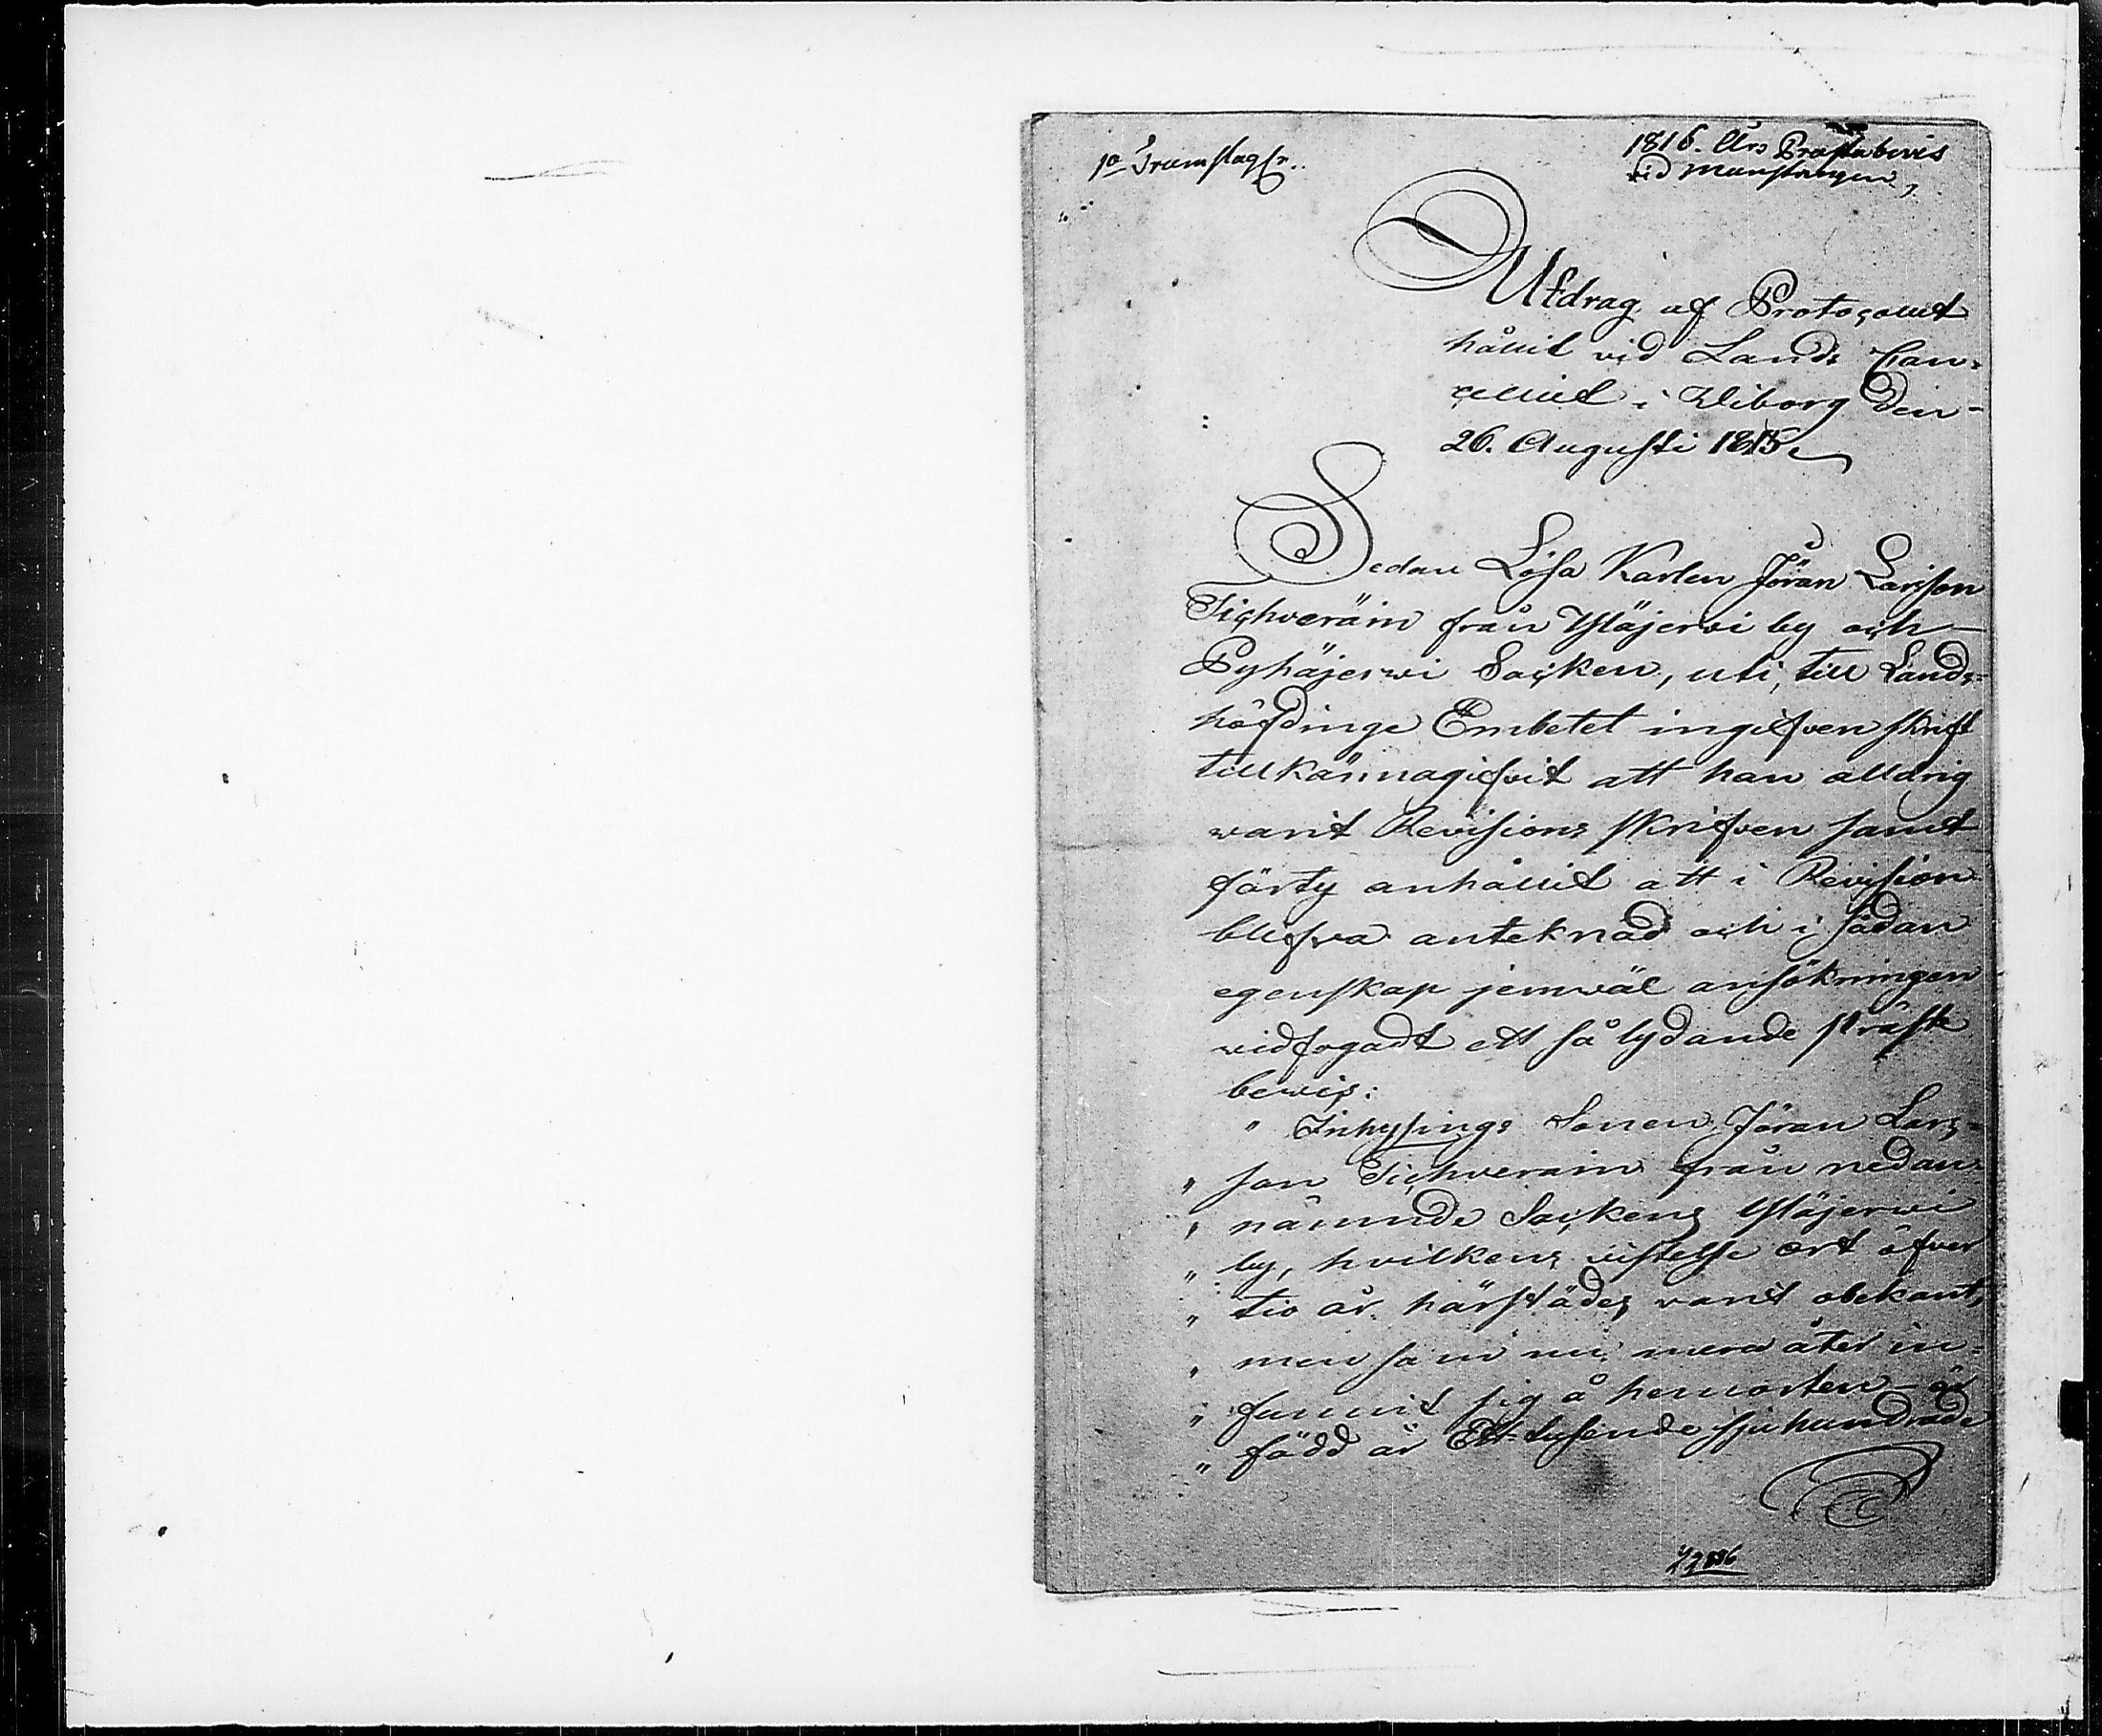 1816. Års Prästebevis
vid Mönstringen
Utdrag af Protocollet
hållit vid Lands Can-
celliet i Wiborg den
26. Augusti 1815.
Sedan Lösa Karlen Jöran Larsson
Tichveräin från Yläjerwi by och
Pyhäjerwi Socken, uti, till Lands-
höfdinge Embetet ingifven skrift
tillkännagifvit att han alldrig
varit Revisions skrifven samt
förty anhållit att i Revision
blifva anteknad och i sådan
egenskap jemwäl ansökningen
vidfogadt ett så lydande präste
bewis:
" Inhysings Sonen Jöran Lars-
" son Tichverain från nedan-
" nämnde Sockens Yläjerwi
" by, hvilkens vistelse ort öfver
" tio år härstädes varit obekant,
" men som nu mera åter in-
" funnit sig å hemorten är
" född år Ett tusende sjuhundrade